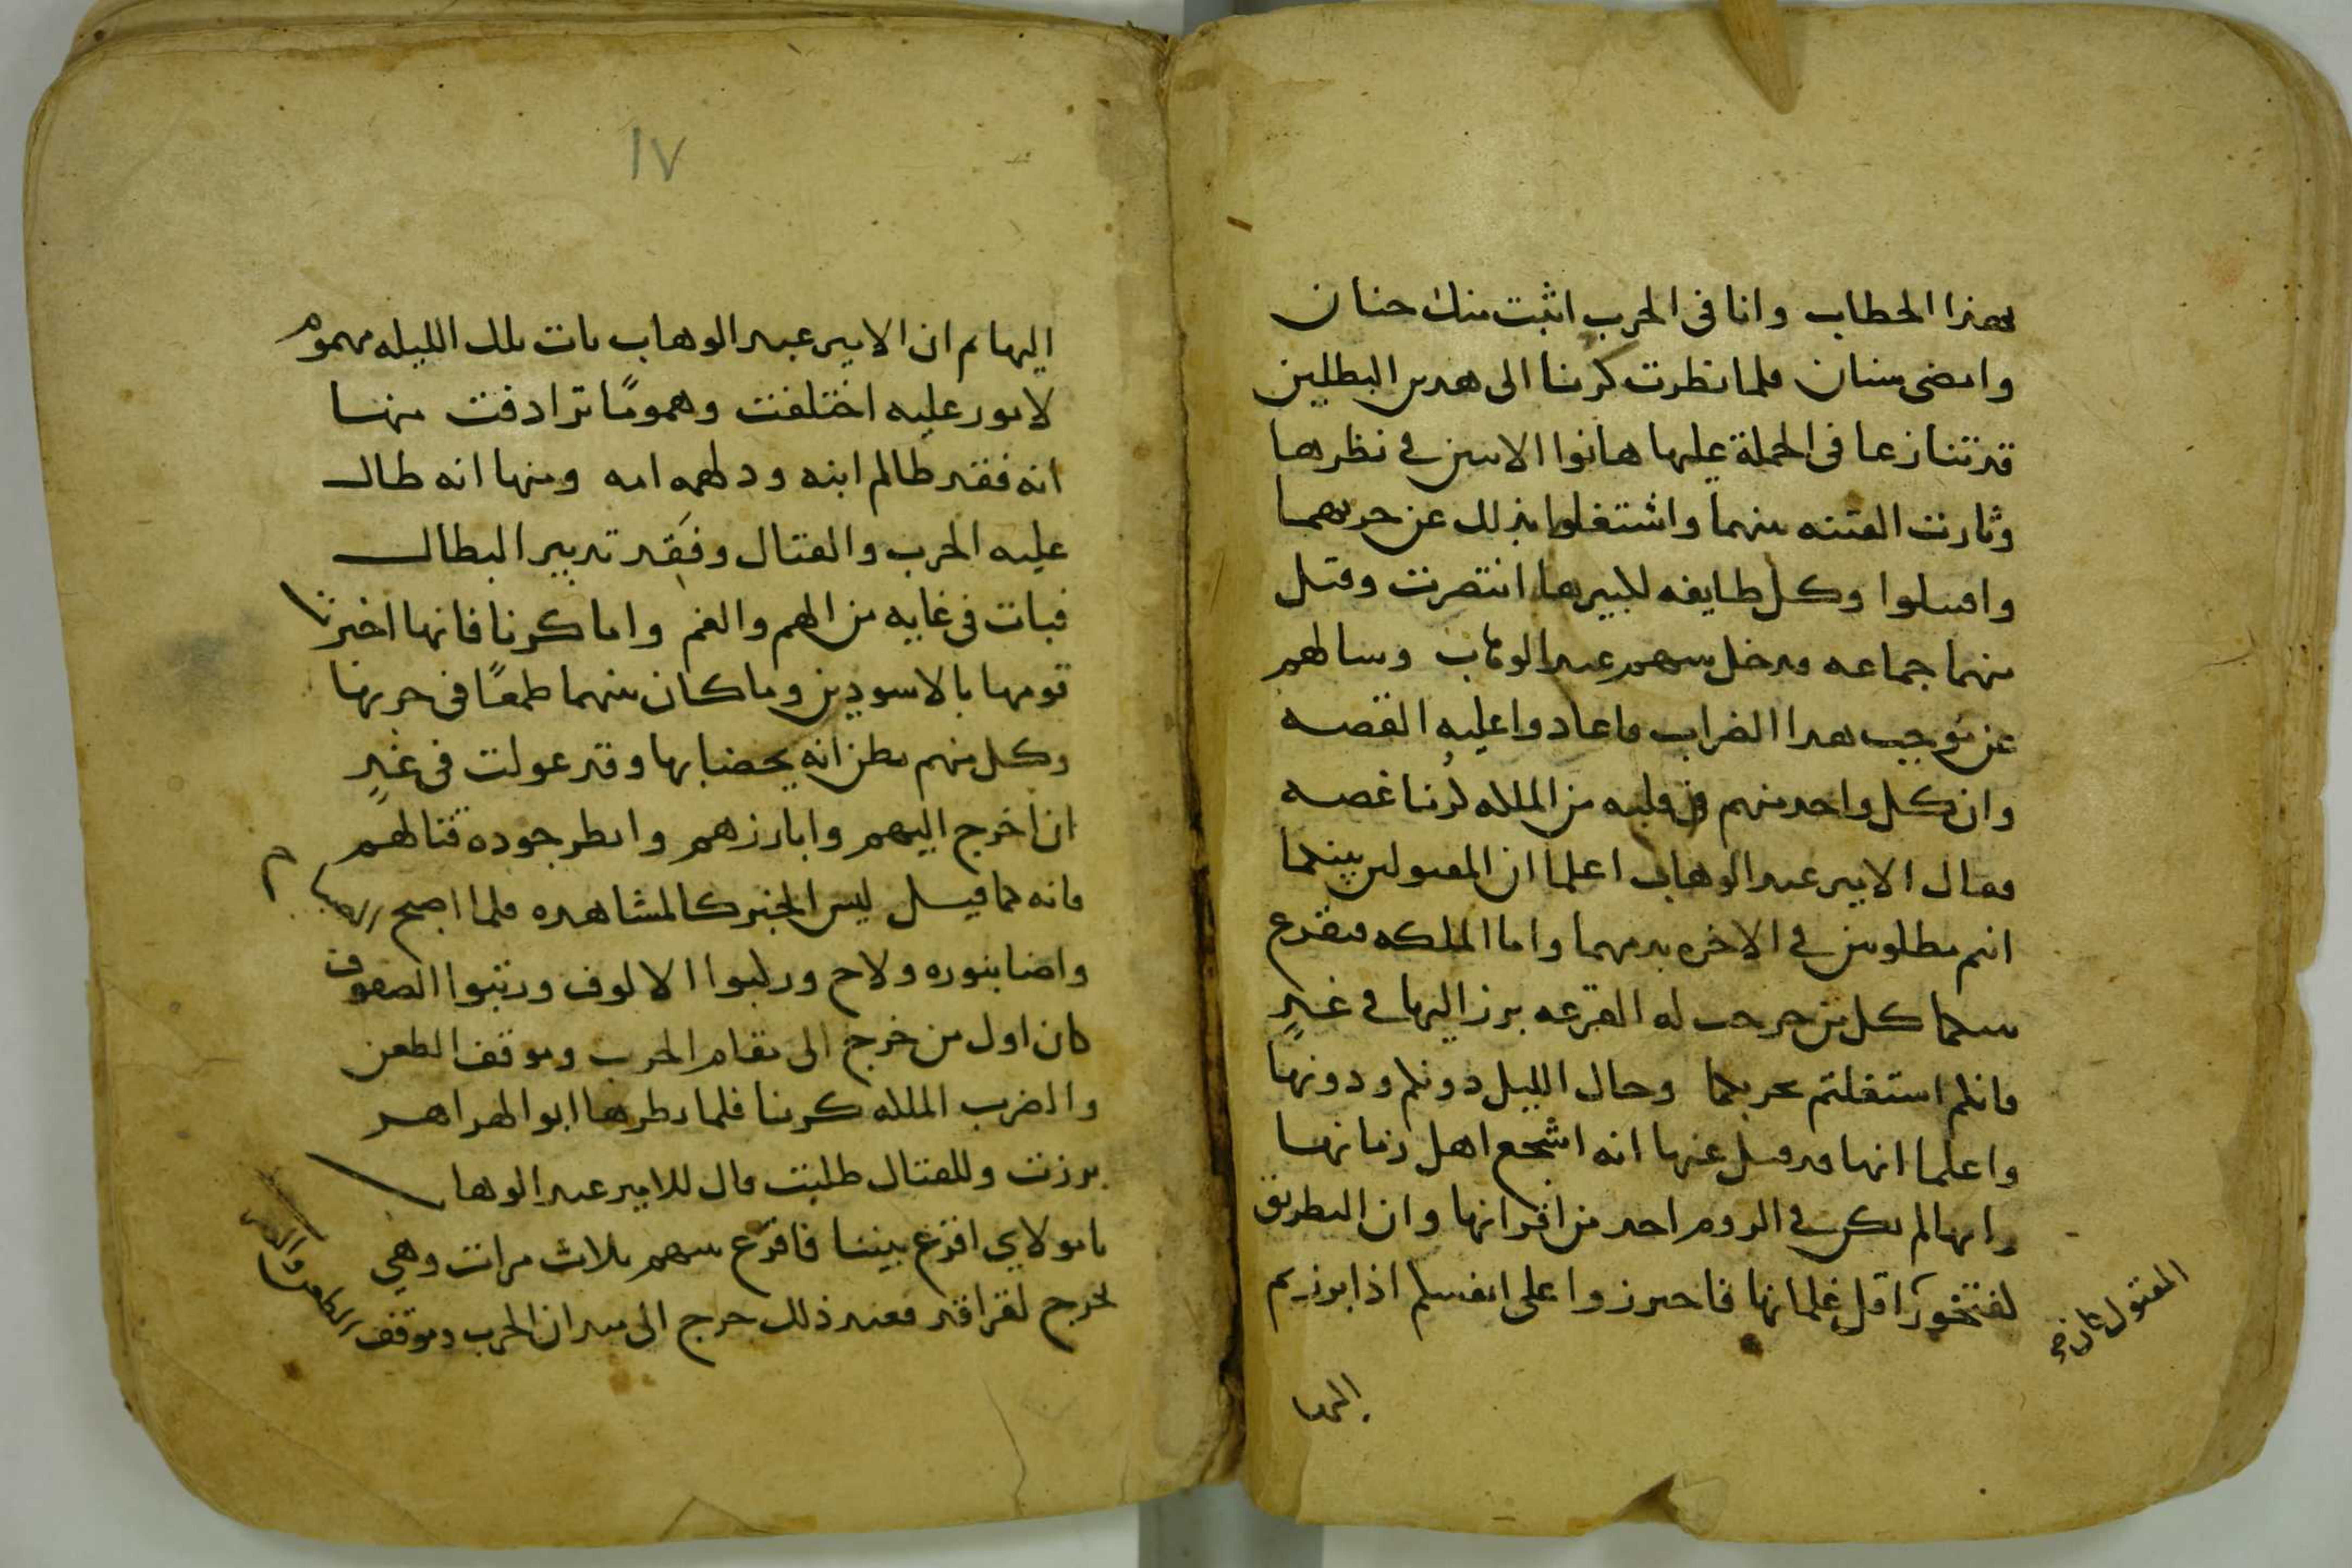 بهذا الخطاب وانا فى الحرب اثبت منك جنان
وامضى سنان فلما نظرت كرنا الى هدين البطلين
قد تنازعا فى الحملة عليها هانوا الاثنين في نظرها
وثارت الفتنه بينهما واشتغلوا بذلك عن حربهما
واقتتلوا وكل طايفه لكبيرها انتصرت وقتل
منهما جماعه فدخل بينهم عبد الوهاب وسالهم
عن موجب هدا الضراب فاعادوا عليه القصه
وان كل واحد منهم في قلبه من الملكه كرنا غصه
فقال الامير عبد الوهاب اعلما ان المقتولين بينكما
انتم مطلوبين في الاخره بدمهما واما الملكه فنقرع
بينكما كل من خرجت له القرعه برز اليها في غدٍ
فانكم اشتغلتم بحربكما وحال الليل دونكم ودونها
واعلما انها قد قيل عنها انه اشجع اهل زمانها
وانها لم يكن في الروم احد من اقرانها وان البطريق
لفتخور اقل غلمانها فاحترزوا على انفسكم اذا برزتم
المقتول
اليها
١٧
اليها ثم ان الامير عبد الوهاب بات تلك الليله مهموم
لامور عليه اختلفت وهمومًا ترادفت منها
انه فقد ظالم ابنه ودلهمه امه ومنها انه طال
عليه الحرب والقتال وفقد تدبير البطال
فبات فى غايه من الهم والغم واما كرنا فانها اخبرت
قومها بالاسودين وما كان منهما طمعًا فى حربها
وكل منهم يظن انه يحضا بها وقد عولت فى غدٍ
ان اخرج اليهم وابارزهم وانظر جوده قتالهم
فانه كما قيل ليس الخبر كالمشاهده فلما اصبح الصباح
واضا بنوره ولاح وركبوا الالوف ورتبوا الصفوف
كان اول من خرج الى مقام الحرب وموقف الطعن
والضرب الملكه كرنا فلما نظرها ابو الهزاهز
برزت وللقتال طلبت قال للامير عبد الوهاب
يا مولاي اقرع بيننا فاقرع بينهم ثلاث مرات وهي
تخرج لقراقد فعند ذلك خرج الى ميدان الحرب وموقف الطعن والضرب